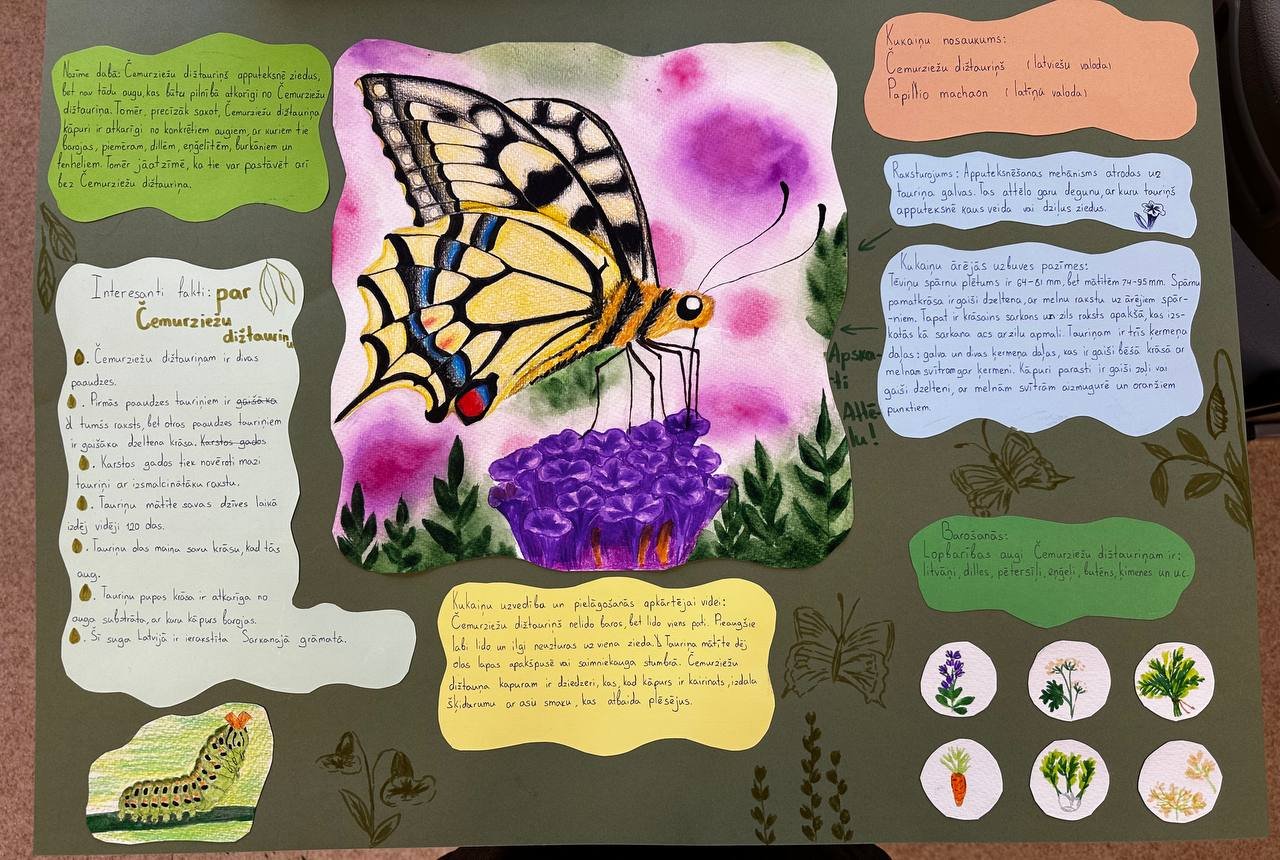 Nozīme dabā: Čemurziežu dižtauriņš apputeksnē ziedus,
bet nav tādu augu, kas būtu pilnībā atkarīgi no Čemurziežu
dižtauriņa. Tomēr, precīzāk sakot, Čemurziežu dižtauriņa
kāpuri ir atkarīgi no konkrētiem augiem, ar kuriem tie
barojas, piemēram, dillēm, eņģelītēm, burkāniem un
fenheliem. Tomēr jāatzīmē, ka tie var pastāvēt arī
bez Čemurziežu dižtauriņa.
Interesanti fakti: par
Čemurziežu
dižtauriņu
. Čemurziežu dižtauriņam ir divas
paaudzes.
. Pirmās paaudzes tauriņiem ir gaišāka
tumšs raksts, bet otrās paaudzes tauriņiem
ir gaišāka dzeltena krāsa. Karstos gados
. Karstos gados tiek novēroti mazi
tauriņi ar izsmalcinātāku rakstu.
. Tauriņu mātīte savas dzīves laikā
izdēj vidēji 120 olas.
. Tauriņu olas maina savu krāsu, kad tās
aug.
. Tauriņu pupas krāsa ir atkarīga no
auga substrāta, ar kuru kāpurs barojas.
. Šī suga Latvijā ir ierakstīta Sarkanajā grāmatā.
Apska-
ti
Attē-
lu!
Kukaiņu uzvedība un pielāgošanās apkārtējai videi:
Čemurziežu dižtauriņš nelido baros, bet lido viens pati. Pieaugšie
labi lido un ilgi neuzturas uz viena zieda. Tauriņa mātīte dēj
olas lapas apakšpusē vai saimniekauga stumbrā. Čemurziežu
dižtauriņa kāpuram ir dziedzeri, kas, kad kāpurs ir kairināts, izdala
šķidrumu ar asu smaku, kas atbaida plēsējus.
Kukaiņu nosaukums:
Čemurziežu dižtauriņš (latviešu valoda)
Papilio machaon (latīņu valoda)
Raksturojums: Apputeksnēšanas mehānisms atrodas uz
tauriņa galvas. Tas attēlo garu degunu, ar kuru tauriņš
apputeksnē kausveida vai dziļus ziedus.
Kukaiņu ārējās uzbūves pazīmes:
Tēviņu spārnu plētums ir 64-81 mm, bet mātītēm 74-95 mm. Spārnu
pamatkrāsa ir gaiši dzeltena, ar melnu rakstu uz ārējiem spār-
-niem. Tāpat ir krāsains sarkans un zils raksts apakšā, kas iz-
katās kā sarkana acs ar zilu apmali. Tauriņam ir trīs ķermeņa
daļas: galva un divas ķermeņa daļas, kas ir gaiši bēšā krāsā ar
melnām svītrām gar ķermeni. Kāpuri parasti ir gaiši zaļi vai
gaiši dzelteni, ar melnām svītrām aizmugurē un oranžiem
punktiem.
Barošanās:
Lopbarības augi Čemurziežu dižtauriņam ir:
litvāņi, dilles, pētersīļi, eņģeļi, butēns, ķimenes un u.c.